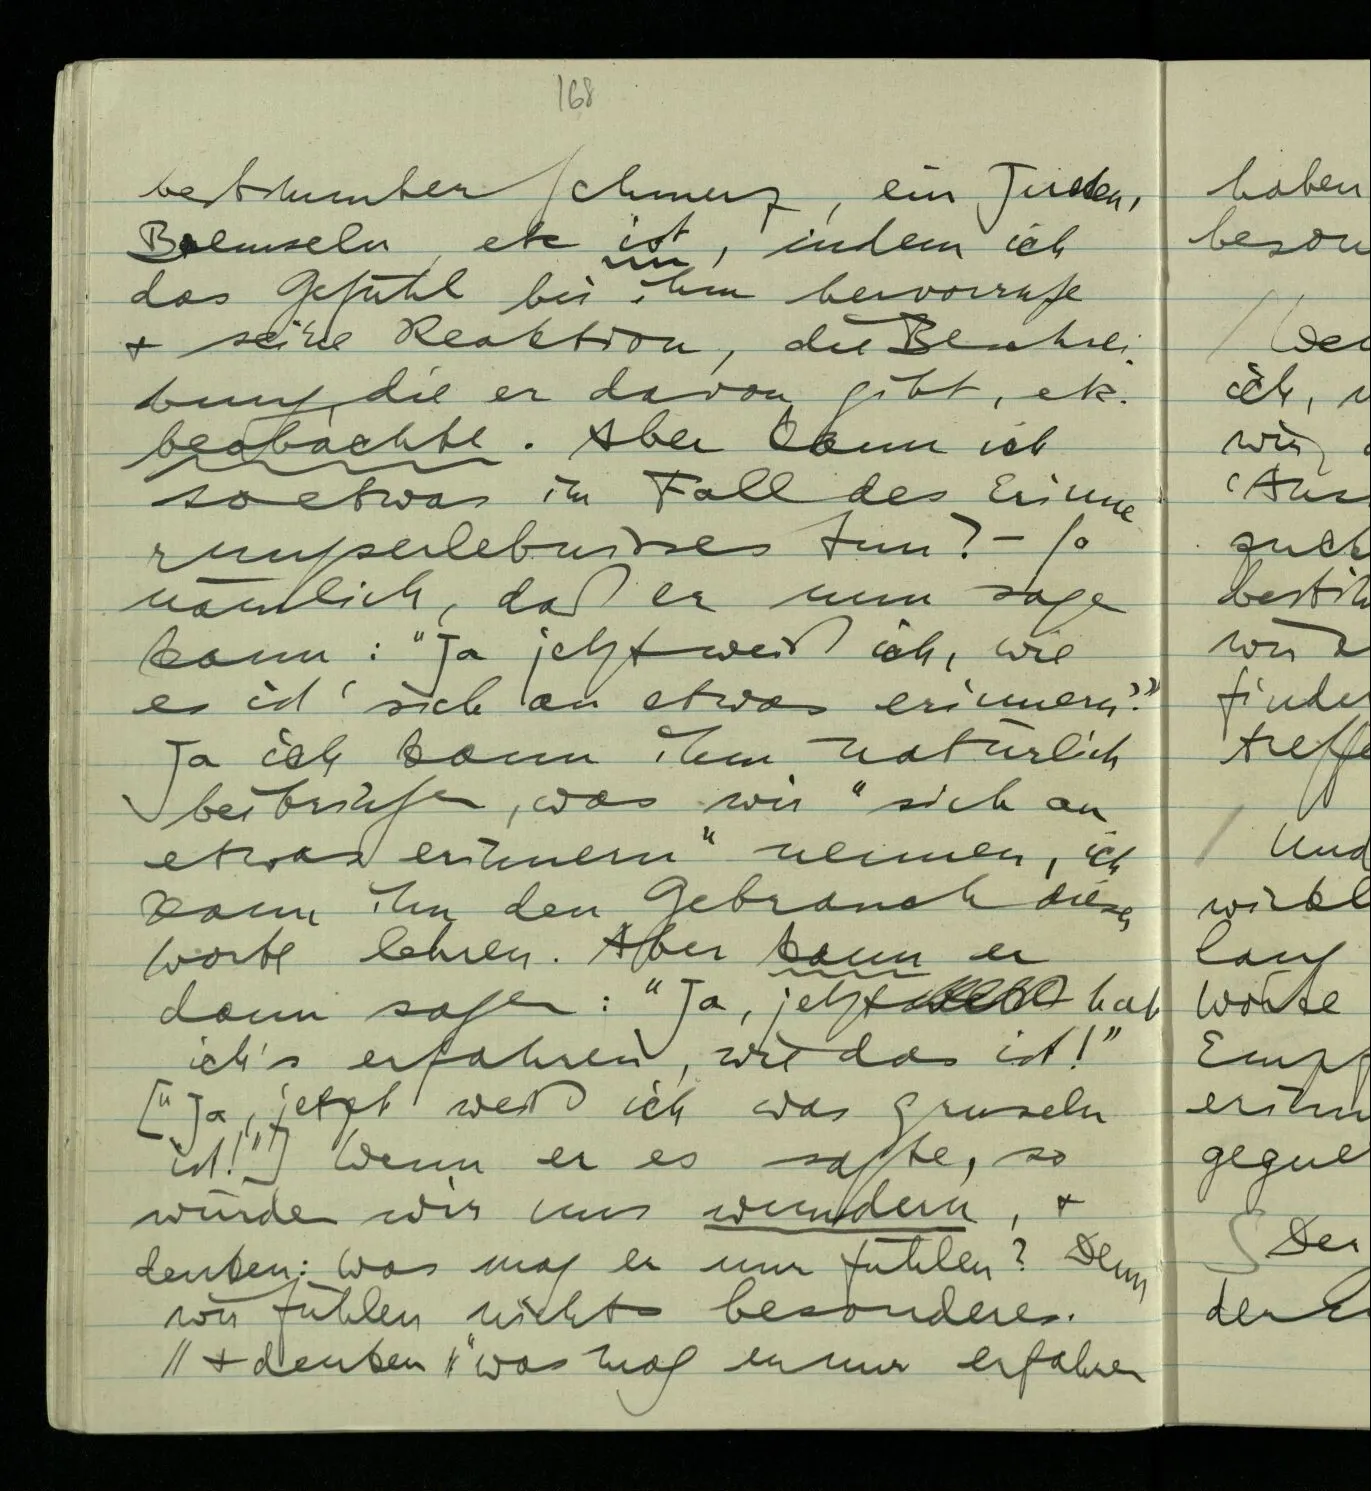 168
bestimmter Schmerz, ein Jucken,
Bremseln, etc ist, indem ich
das Gefühl bei ihm hervorrufe
+ seine Reaktion, die Beschrei-
bung, die er davon gibt, etc.
beobachte. Aber kann ich
so etwas im Fall des Erinne
rungserlebnisses tun? – So
nämlich, daß er nun sage
kann: "Ja jetzt weiß ich, wie
es ist 'sich an etwas erinnern'?"
Ja ich kann ihm natürlich
beibringen, was wir "sich an
etwas erinnern" nennen, ich
kann ihn den Gebrauch dieser
Worte lehren. Aber kann er
dann sagen: "Ja, jetzt hab
ich's erfahren, wie das ist!"
["Ja, jetzt weiß ich was gruseln
ist!"] Wenn er es sagte, so
würden wir uns wundern, +
denken: was mag er nur fühlen? Denn
wir fühlen nichts besonderes.
// + denken // "was mag er nur erfahren
haben
beson
Wen
ich, w
wir
'Aus
such
bestim
wir
finden
treffe
Und
wirkl
lang
Worte
Empf
erinn
gegne
S Der
der